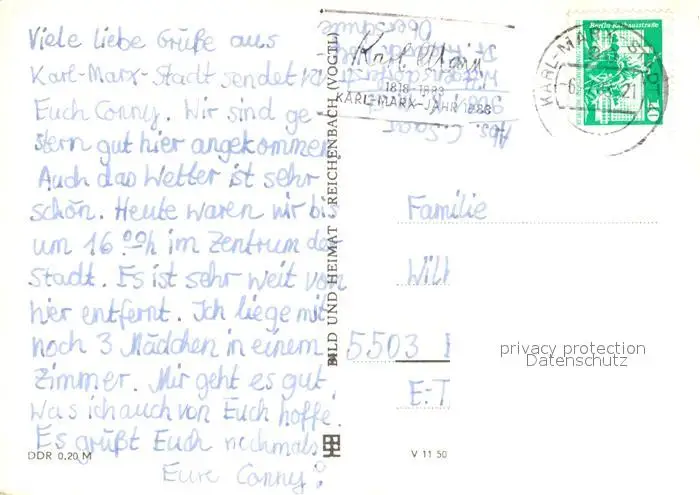 Viele liebe Grüße aus
Karl-Marx-Stadt sendet
Euch Conny. Wir sind ge
stern gut hier angekommen
Auch das Wetter ist sehr
schön. Heute waren wir bis
um 16.00h im Zentrum der
Stadt. Es ist sehr weit von
hier entfernt. Ich liege mit
noch 3 Mädchen in einem
Zimmer. Mir geht es gut,
was ich auch von Euch hoffe.
Es grüßt Euch nochmals
Eure Conny!
DDR 0,20 M
BILD UND HEIMAT REICHENBACH (VOGTL)
V 11 50
Karl Marx
1818-1883
KARL-MARX-JAHR 1983
KARL-MARX-STADT
Berlin-Rathausstraße
10
Abs. C.
Oberschule
Familie
5503
privacy protection
Datenschutz